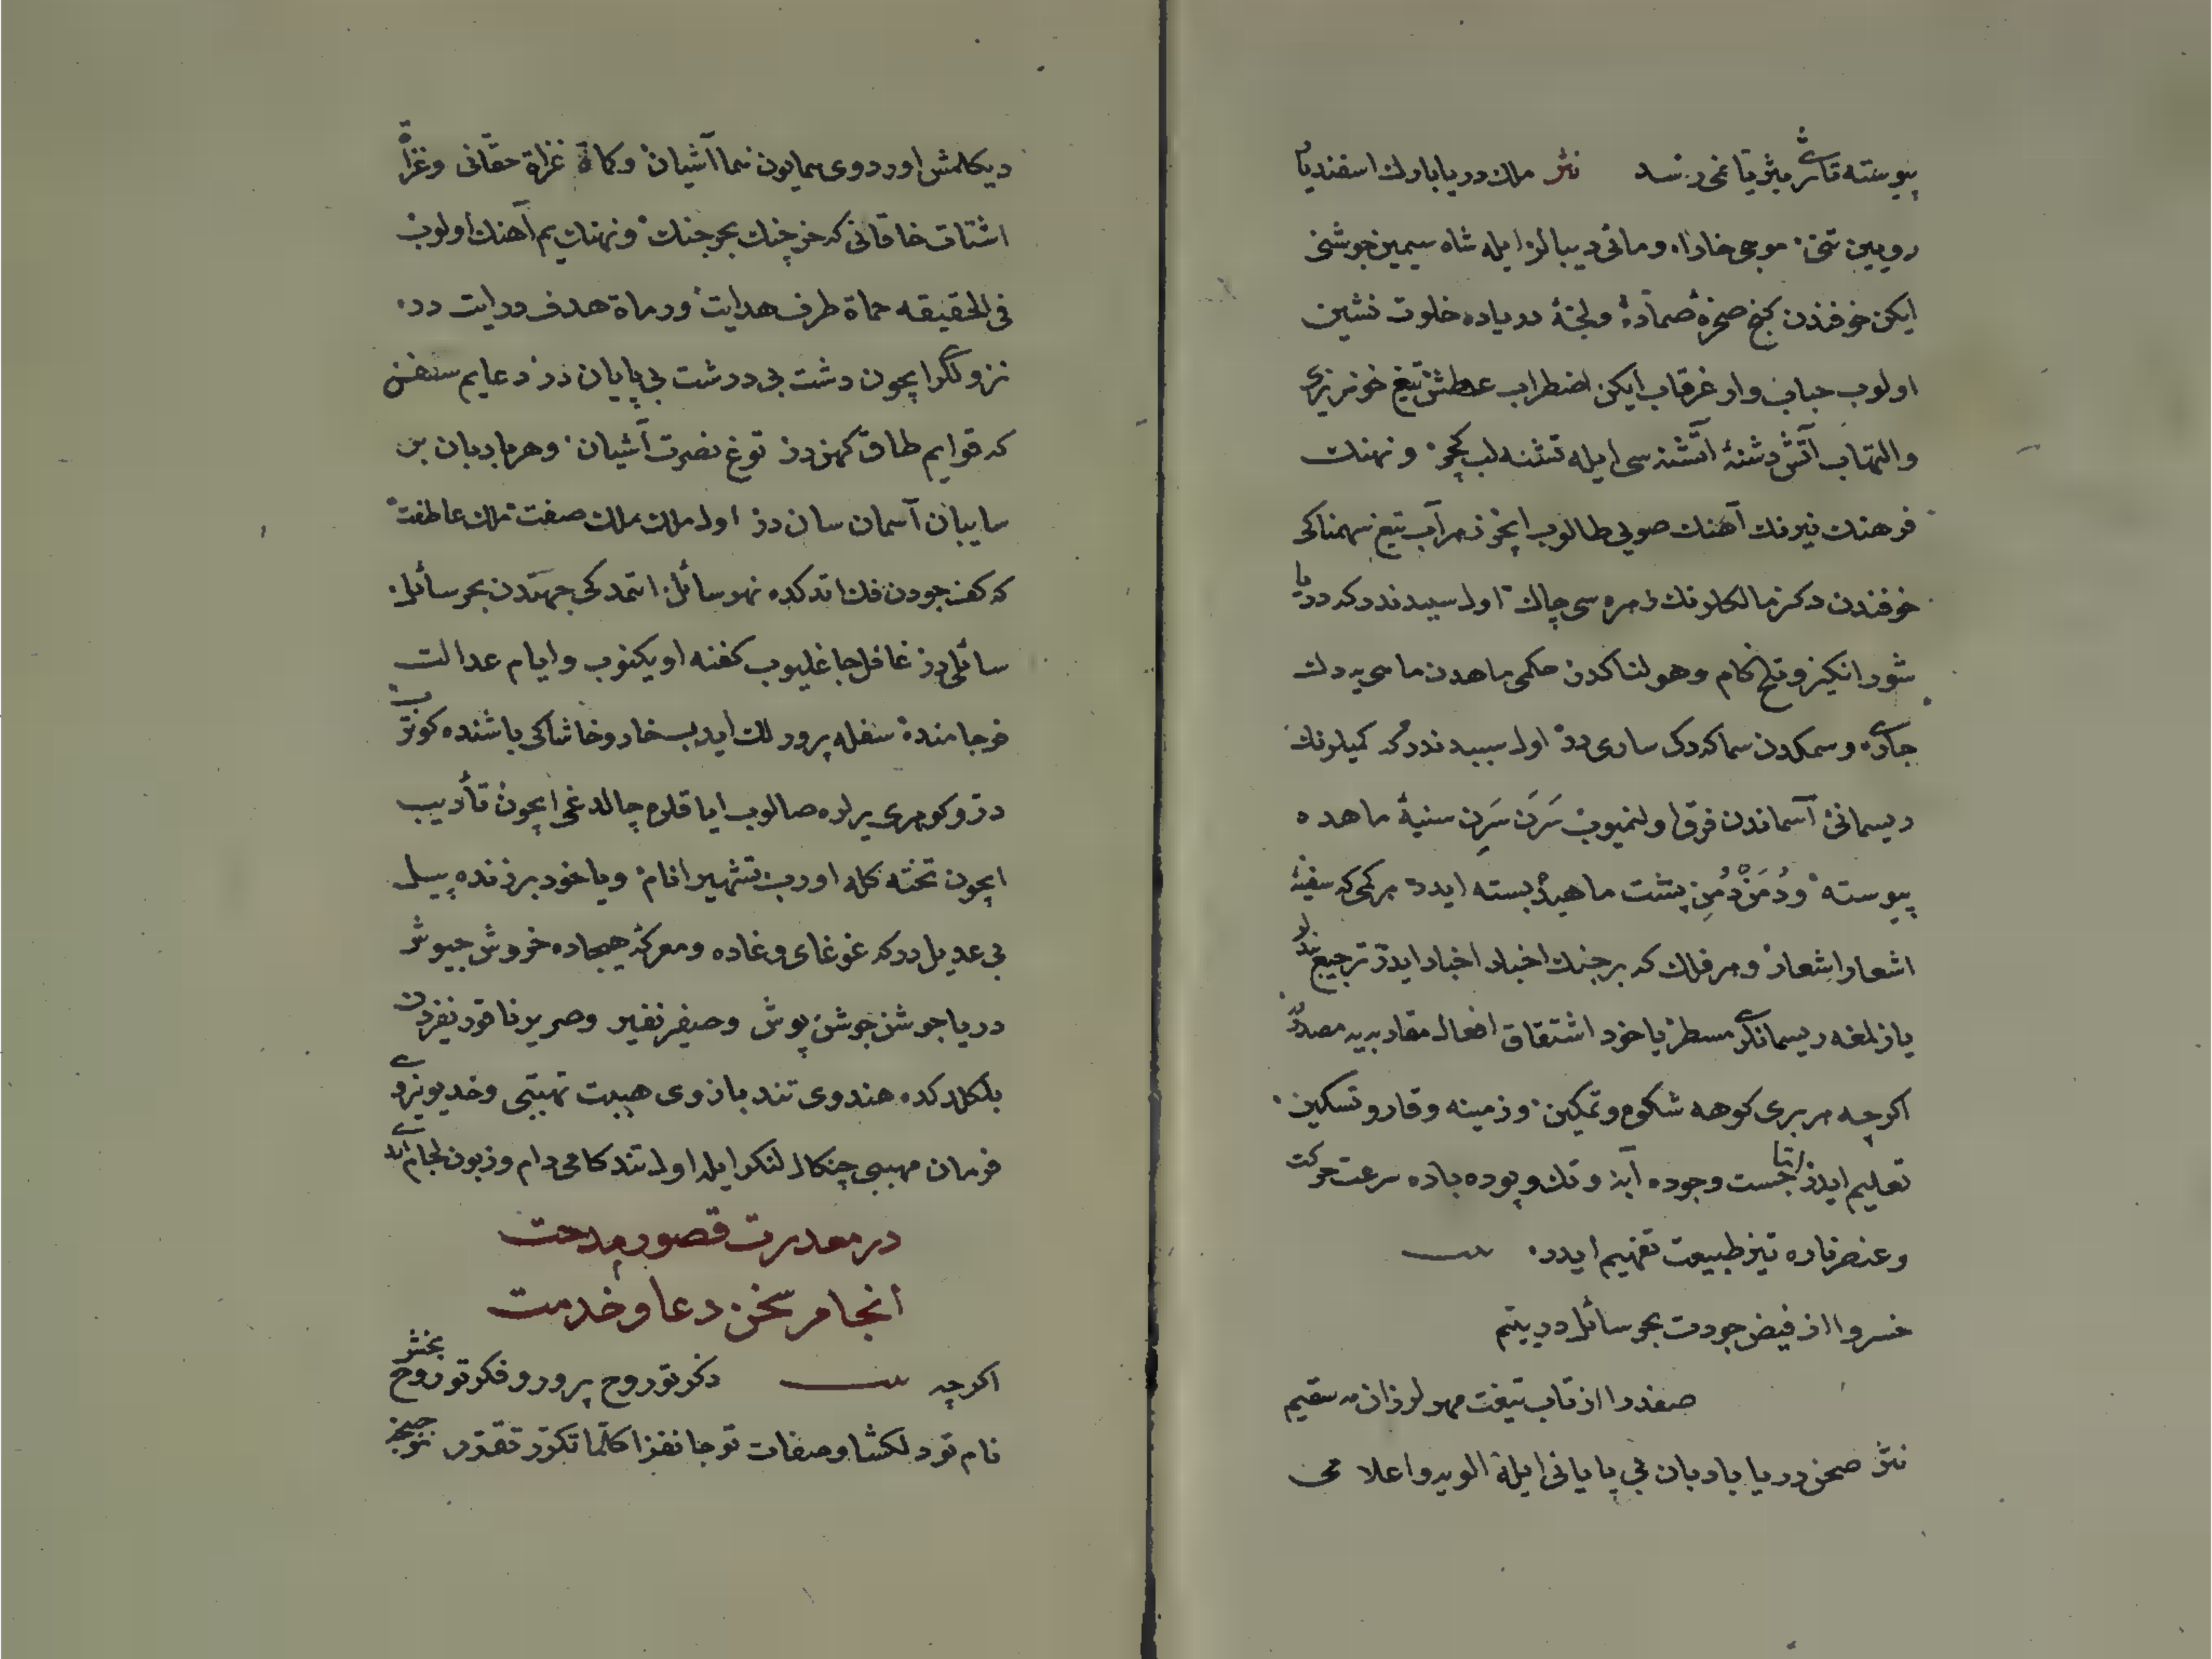 پیوسته تاثریّثریّا غی رسد نثر ملك دریابارك اسفندیار
رویین تنی موجی خارا و مائی دیبالر ایله شاه سیمین جوشنی
ایكن خوفندن كنج صخرهٔ صمّاده و لجّهٔ دریاده خلوت نشین
اولوب حباب وار غرقاب ایكن اضطراب عطش تیغ خونریزی
والتهاب آتش دشنهٔ آتشنه سی ایله تشنه لب و نهنك
فرهنك نیرنك آهنك صویی طالوب ایچر زهرآب تیغ سهمناكی
خوفندن دكز مالكلرنك زهره سی چاك اول سببدندر كه دریا
شور انكیز و تلخ كام و هولناكدن حكمی ماهدن ماهی یه دك
جاری و سمكدن سماكه دك ساری در اول سببدندر كه كمیلرنك
ریسمانی آسماندن فرق اولنمیوب سَرَن سَرِن سینهٔ ماهده
پیوسته و دُمَن دُمِن پشت ماهیده بسته ایدر هر كمی كه سفینهٔ
اشعار اشعار و هر فلك كه بر جنك اخبار اخبار ایدر ترجیع بندلر
یازلمغه ریسمانلری مسطر یا خود اشتقاق افعال مقادیریه مصدر
اكرچه هر بری كوهه شكوه و تمكین و زمینه وقار و تسكین
تعلیم ایدر امّا جست و جوده آبه و تك و پوده باده سرعت حركت
و عنصر ناره تیز طبیعت تفهیم ایدر بیت
خسروا از فیض جودت بحر سائل در یتیم
صفدرا از تاب تیغت مهر لرزان مه سقیم
نثر صحن دریا بادبان بی پایانی ایله الویه و اعلامی
دیكلمش اوردوی همایون سما آشیان و كماة غزاة حقّانی و غزاة
اشتات خاقانی كه خرچنك بحر جنك و نهنك یم آهنك اولوب
فی الحقیقه حماة طرف هدایت و رماة هدف درایت در
نزوللری ایچون دشت بی درشت بی پایان در دعایم سنفن
كه قوایم طاق كهن در توغ نصرت آشیان و هر بادبان بر
سایبان آسمان سان در اول ملك ملك صفت ملك عاطفت
كه كف جودن فك اتدكده نهر سائل اتمدكی جهتدن بحر سائل
سائلی در غافل جاغلیوب كفنه اویكنوب و ایام عدالت
فرجامنده سفله پرورلك ایدیب خار و خاشاكی باشنده كوتروب
درّ و كوهری یرلره صالوب ایاقلره چالدغی ایچون تأدیب
ایچون تخته كله اورب تشهیر انام و یا خود بر زنده پیل
بی عدیل در كه غوغای وغاده و معركهٔ هیجاده خروش جیوش
دریا جوش جوشن پوش و صفیر نفیر و صریر ناقور نفردن
بلكلدكده هندوی تند بازوی هیبت تهیبتی و خدیو یزدی
فرمان مهیبی چنكال لنكر ایله اول تند كامی رام و زبون لجام ایدی
در معذرت قصور مدحت
انجام سخن دعا و خدمت
اكرچه بیت ذكر تو روح پرور و فكر تو روح بخش
نام تو دلكشا و صفات تو جانفزا كلّما تكرّر تقرّر